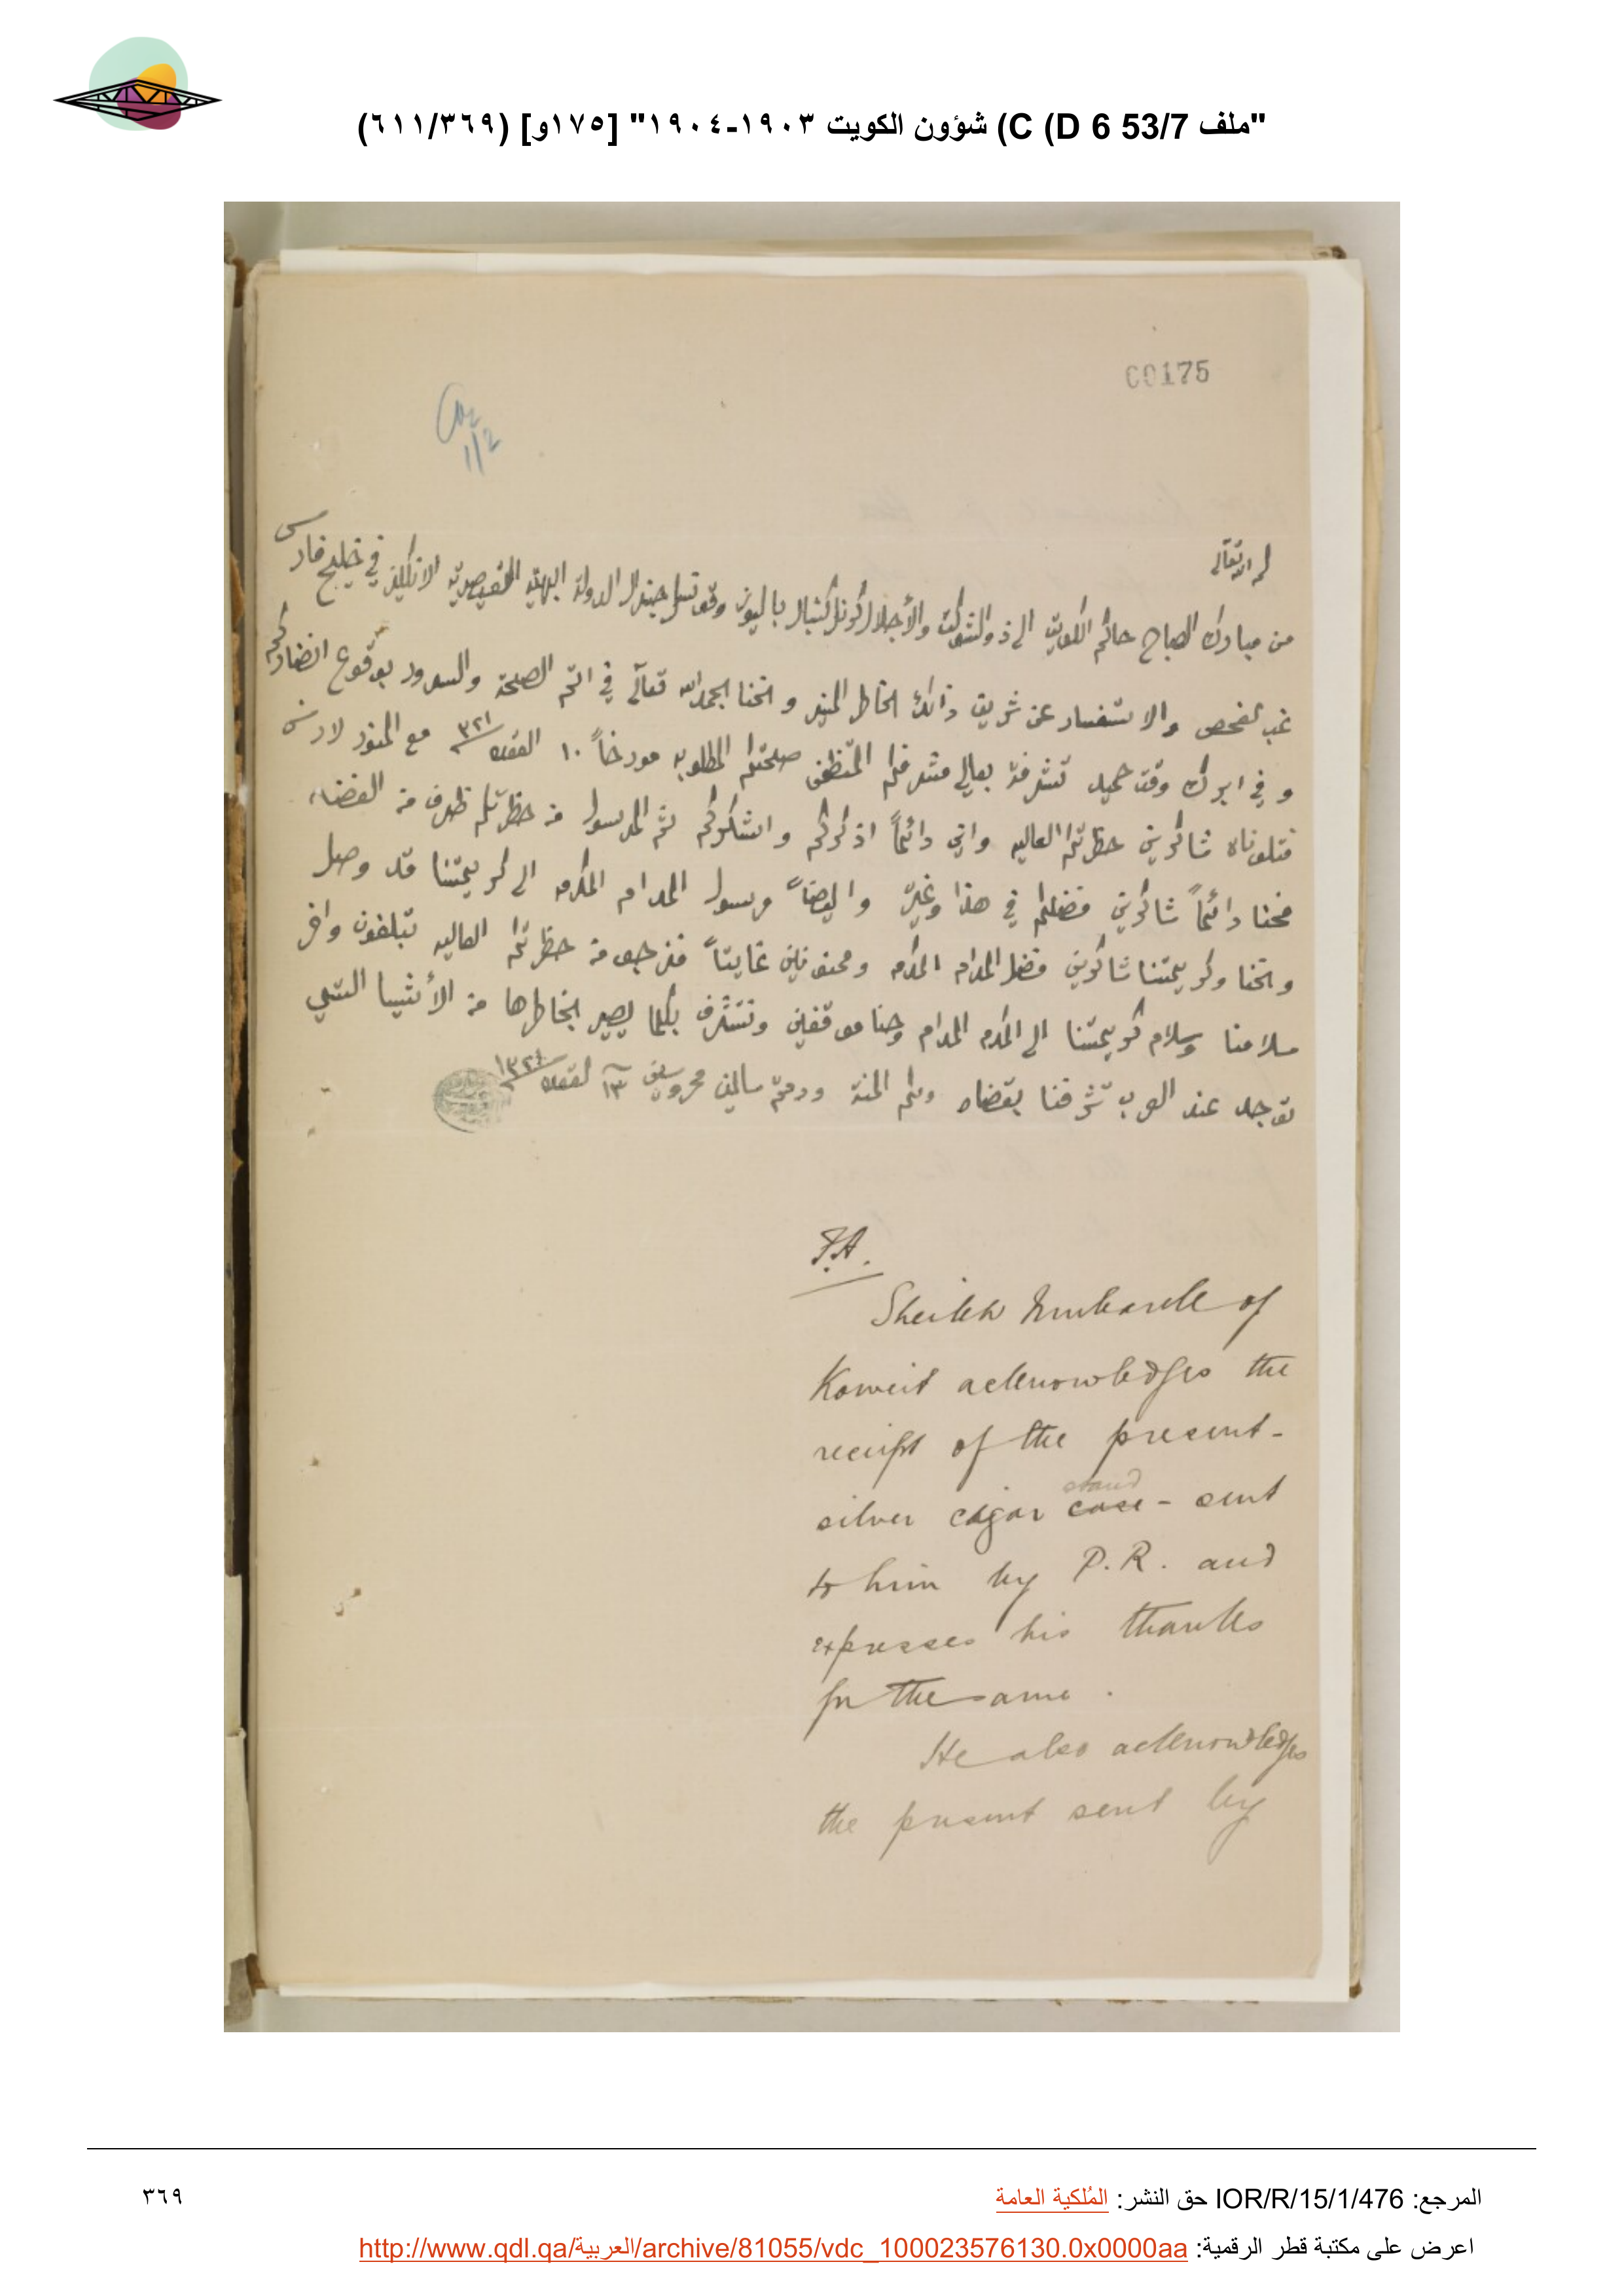 "ملف 53/7 C (D 6) شؤون الكويت ١٩٠٣-١٩٠٤" [١٧٥و] (٣٦٩/٦١١)
00175
1/2
لله تعالى
من مبارك الصباح حاكم الكويت الى ذو الشوكت والأجلال كرنل كنبال باليوز وقونسل جنرال الدولة البهية القيصرية الانكليز في خليج فارس
غب لفحص والاستفسار عن شريف ذالك الخاطر المنير واحنا بحمد الله تعآلى في اتم الصحة والسرور بوقوع انضاركم
و في ابرك وقت حميد تشرفة بعالي مشرفكم المتظمن صحتكم المطلوبه مورخاً ١٠ القعده ٣٢١ مع المنور لارنس
فتلوناه شاكرين حظرتكم العاليه واني دائماً اذكركم واشكركم ثم المرسول من حظرتكم ظرف من الفضه
فحنا دائماً شاكرين فضلكم في هذا وغيره وايضاً مرسول المدام المكرمه الى كريمتنا قد وصل
واحنا وكريمتنا شاكرين فضل المدام المكرمه وممنونين غايتاً فنرجو من حظرتكم العاليه تبلغون وافر
سلامنا وسلام كريمتنا الى المكرمه المدام وحنا موقفين ونتشرف بكلما يصير بخاطرها من الأشيا التي
توجد عند العرب تشرفنا بقضاه ولكم المنة ودمتم سالمين محروسين ١٣ لقعده ١٣٢١
F.A.
Sheikh Mubarak of
Koweit acknowledges the
receipt of the present -
silver cigar case stand - sent
to him by P.R. and
expresses his thanks
for the same.
He also acknowledges
the present sent by
المرجع: IOR/R/15/1/476 حق النشر: المُلكية العامة
٣٦٩
اعرض على مكتبة قطر الرقمية: http://www.qdl.qa/العربية/archive/81055/vdc_100023576130.0x0000aa